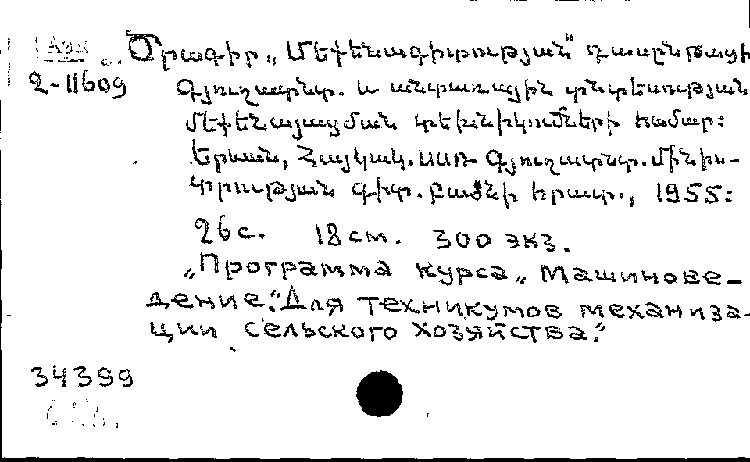 Ծրագիր „Մեքենագիտության" դասընթացի
2-11609
Գյուղատնտ. և անտառային տնտեսության
մեքենայացման տեխնիկումների համար:
Երևան, Հայկակ. ՍՍՌ Գյուղատնտ. մինիս-
տրության գիտ. բաժնի հրատ., 1955:
26 с. 18 см. 300 экз.
„Программа курса „Машинове-
дение." Для техникумов механиза-
ции сельского хозяйства."
34399